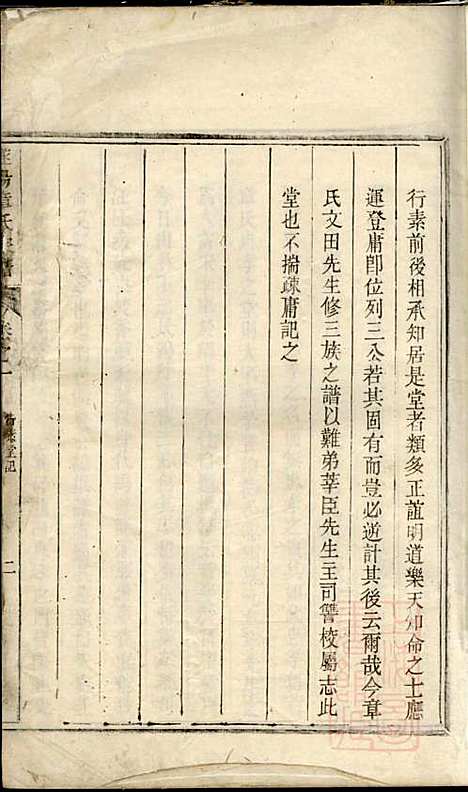 行素前後相承知居是堂者類多正誼明道樂天知命之士應
運登庸即位列三公若其固有而豈必逆計其後云爾哉今章
氏文田先生修三族之譜以難弟莘臣先生主司讐校屬志此
堂也不揣疎庸記之
章氏宗譜
卷之一
堂記
二